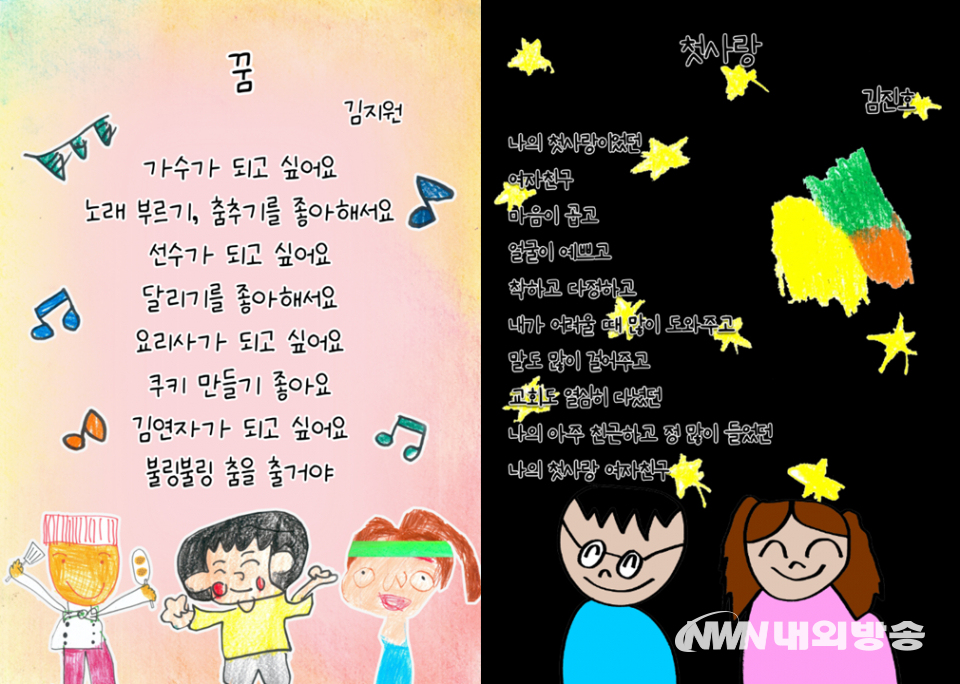 꿈
김지원
가수가 되고 싶어요
노래 부르기, 춤추기를 좋아해서요
선수가 되고 싶어요
달리기를 좋아해서요
요리사가 되고 싶어요
쿠키 만들기 좋아요
김연자가 되고 싶어요
불링불링 춤을 출거야
첫사랑
김진호
나의 첫사랑이였던
여자친구
마음이 곱고
얼굴이 예쁘고
착하고 다정하고
내가 어려울 때 많이 도와주고
말도 많이 걸어주고
교회도 열심히 다녔던
나의 아주 친근하고 정 많이 들었던
나의 첫사랑 여자친구
NWN내외방송